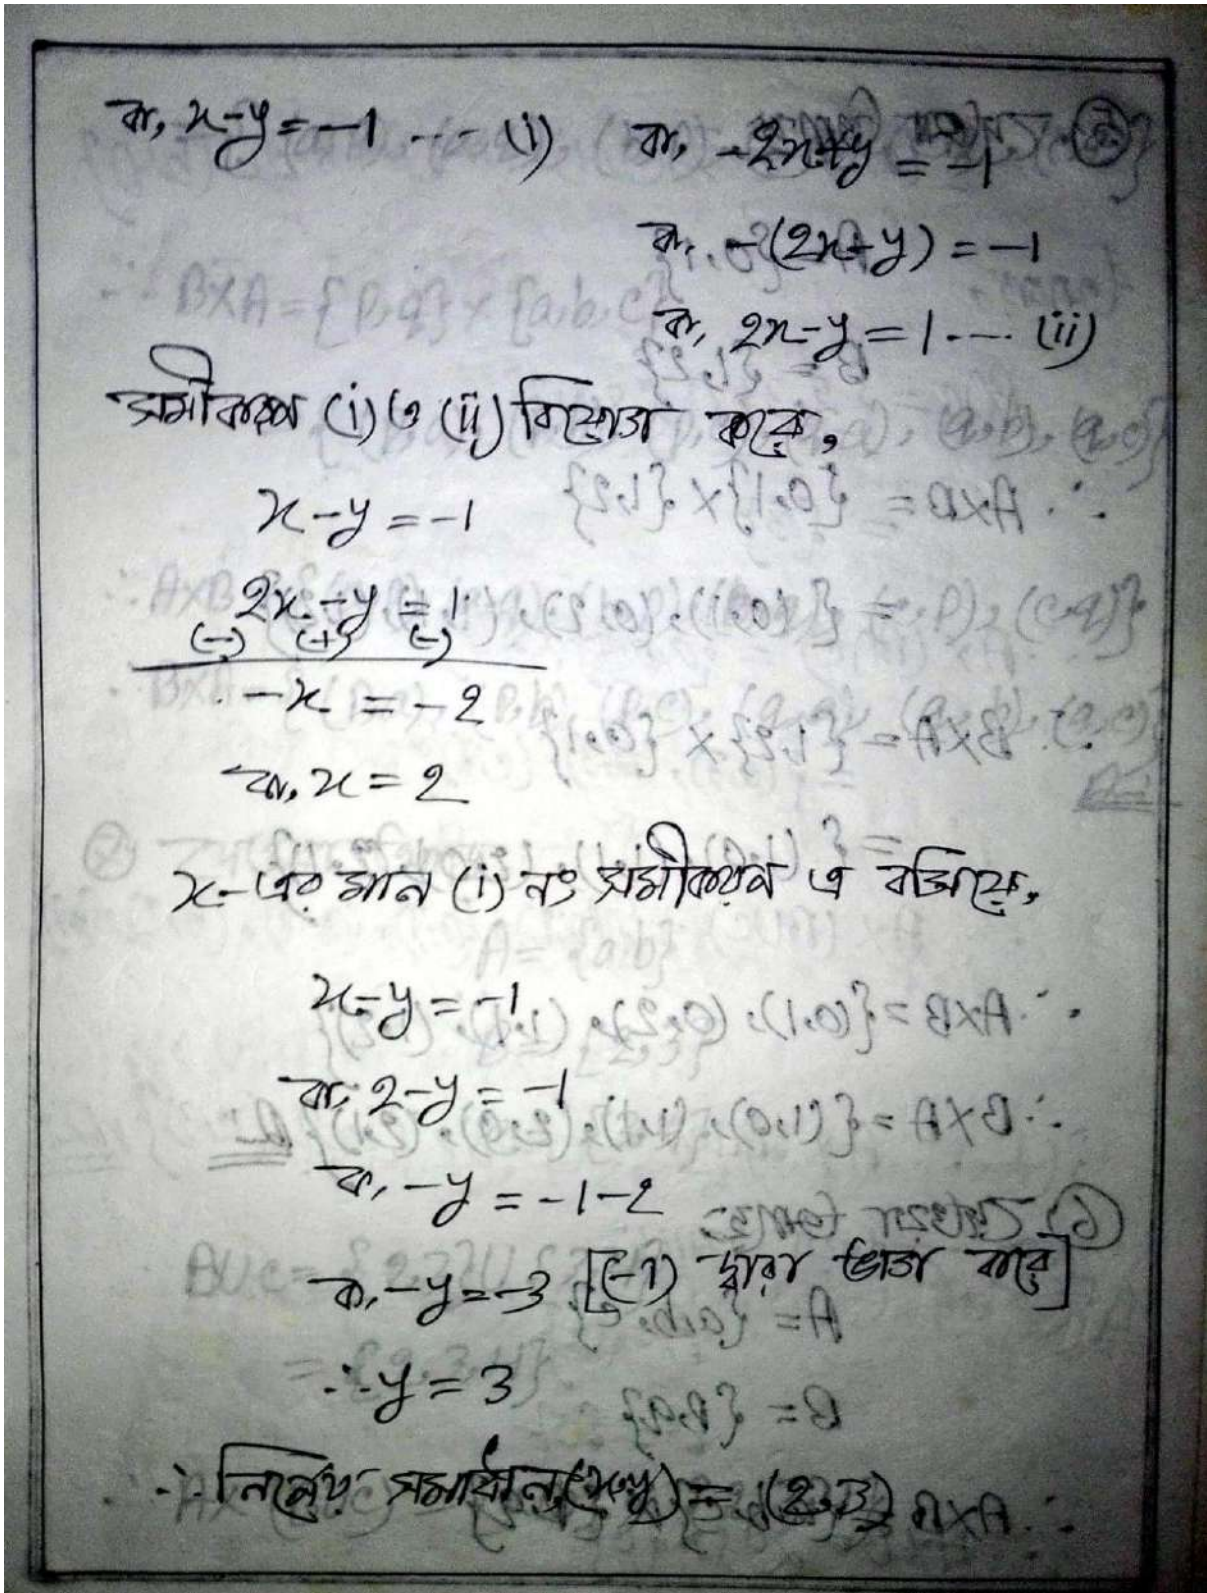 বা, x-y = -1 ... (i) বা, -2x+y = -1
বা, -(2x-y) = -1
বা, 2x-y = 1 .... (ii)
সমীকরণ (i) ও (ii) বিয়োগ করে,
x-y = -1
2x-y = 1
(-) (+) (-)
-x = -2
বা, x = 2
x-এর মান (i) নং সমীকরণ এ বসিয়ে,
x-y = -1
বা, 2-y = -1
বা, -y = -1-2
বা, -y = -3 [(-1) দ্বারা ভাগ করে]
∴ y = 3
∴ নির্ণেয় সমাধান, (x,y) = (2,3)